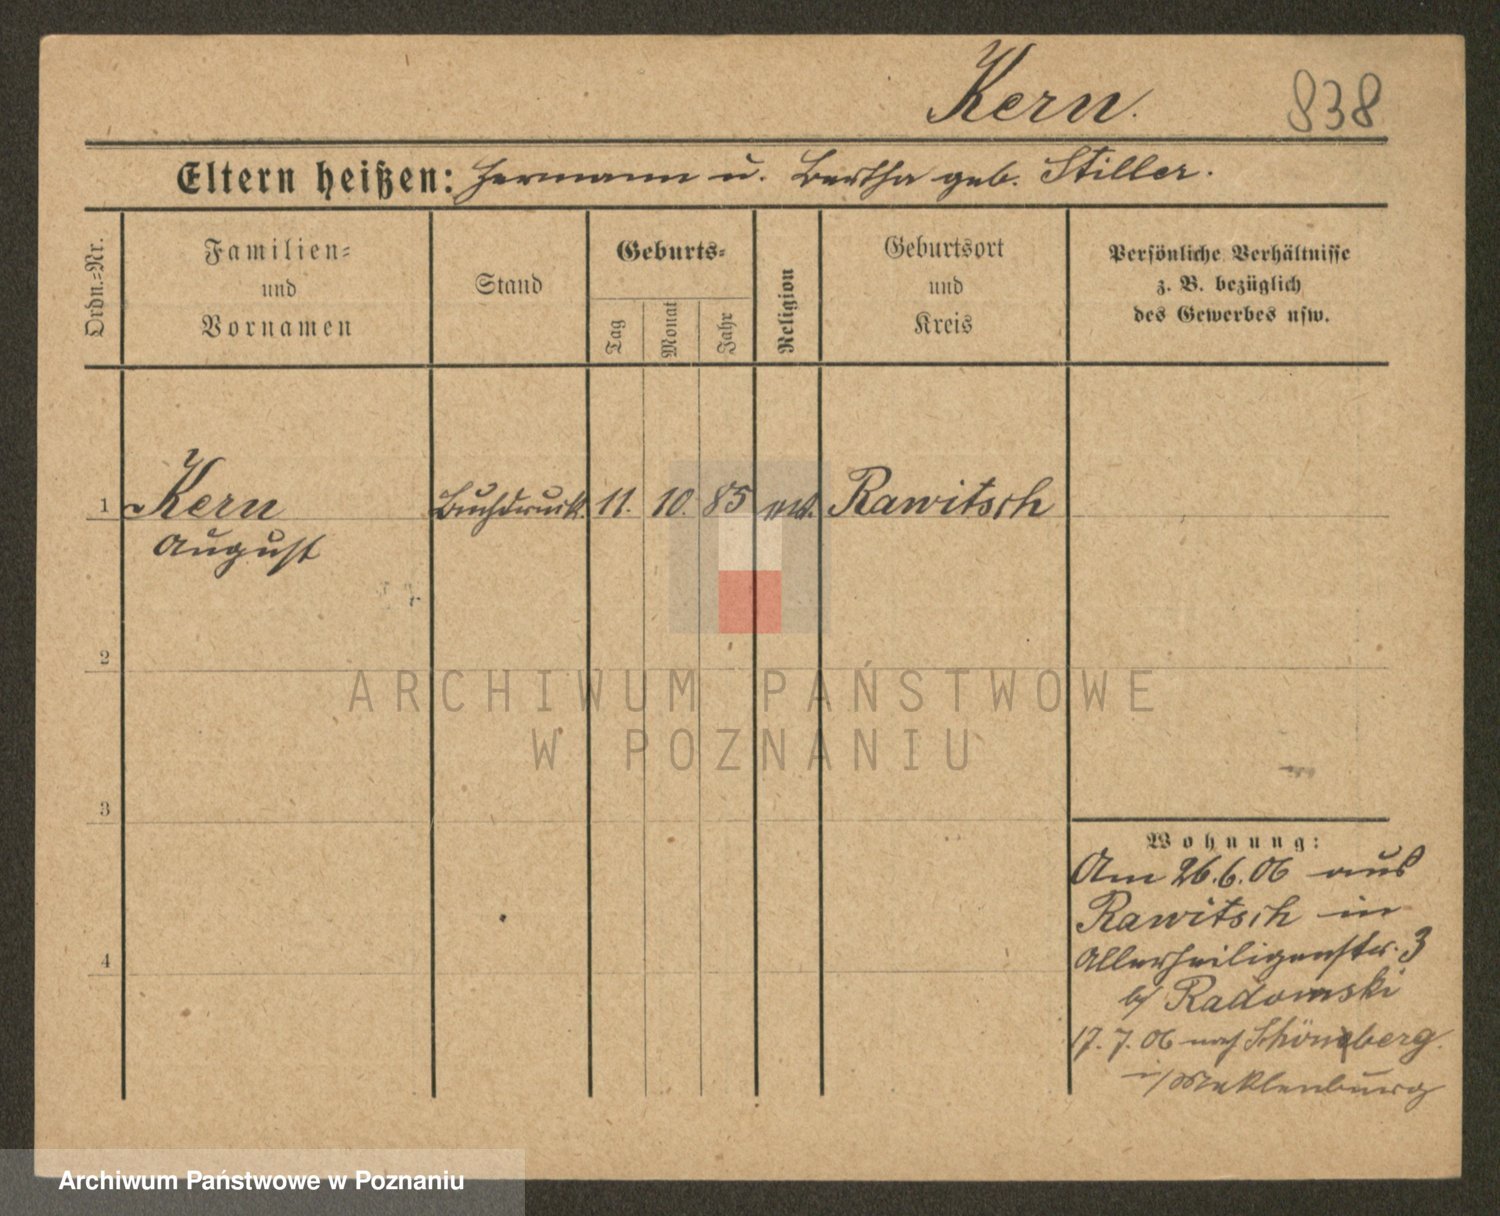 Kern.
838
Eltern heißen: Hermann u. Bertha geb. Stiller.
Ordn.=Nr.
Familien=
und
Vornamen
Stand
Geburts=
Tag
Monat
Jahr
Religion
Geburtsort
und
Kreis
Persönliche Verhältnisse
z. B. bezüglich
des Gewerbes usw.
1 Kern Buchdruck. 11. 10. 85 ev. Rawitsch
August
2
3
4
Wohnung:
Am 26.6.06 aus
Rawitsch in
Allerheiligenstr. 3
b/ Radomski
17.7.06 nach Schönberg.
i/ Meklenburg
ARCHIWUM PAŃSTWOWE
W POZNANIU
Archiwum Państwowe w Poznaniu